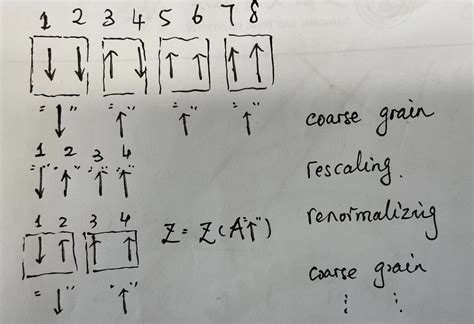 1 2 3 4 5 6 7 8
↓ ↓ ↑ ↓ ↑ ↑ ↑ ↑
=" ↓ " =" ↑ " =" ↑ " =" ↑ "
coarse grain
1 2 3 4
"↓" "↑" "↑" "↑"
rescaling.
1 2 3 4
↓ ↑ ↑ ↑
Z = Z(A"↑")
renormalizing
=" ↓ " " ↑ "
coarse grain
⋮ ⋮